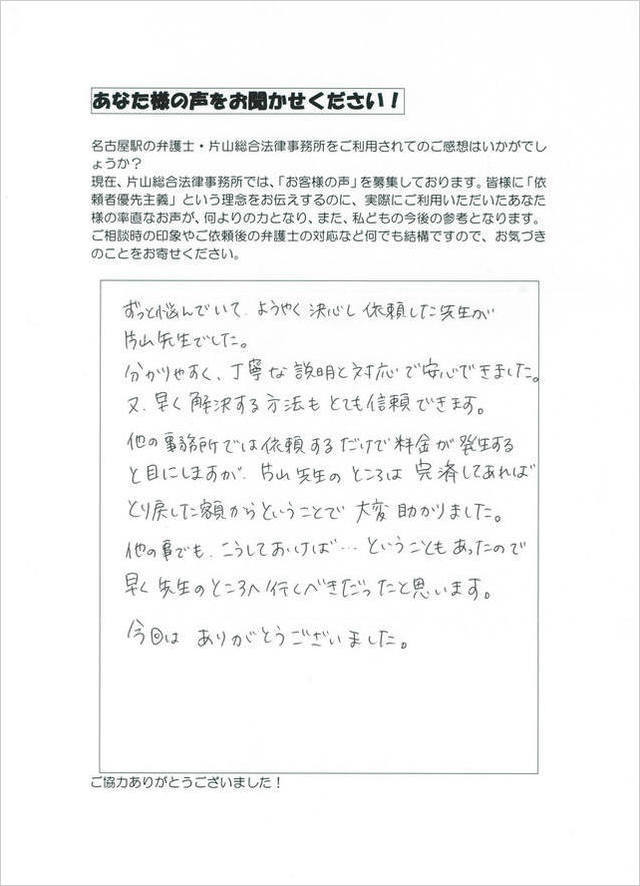 あなた様の声をお聞かせください！
名古屋駅の弁護士・片山総合法律事務所をご利用されてのご感想はいかがでし
ょうか？
現在、片山総合法律事務所では、「お客様の声」を募集しております。皆様に「依
頼者優先主義」という理念をお伝えするのに、実際にご利用いただいたあなた
様の率直なお声が、何よりの力となり、また、私どもの今後の参考となります。
ご相談時の印象やご依頼後の弁護士の対応など何でも結構ですので、お気づき
のことをお寄せください。
ずっと悩んでいて、ようやく決心し依頼した先生が
片山先生でした。
分かりやすく、丁寧な説明と対応で安心できました。
又、早く解決する方法もとても信頼できます。
他の事務所では依頼するだけで料金が発生する
と目にしますが、片山先生のところは完済してあれば
とり戻した額からということで大変助かりました。
他の事でも、こうしておけば…ということもあったので
早く先生のところへ行くべきだったと思います。
今回はありがとうございました。
ご協力ありがとうございました！